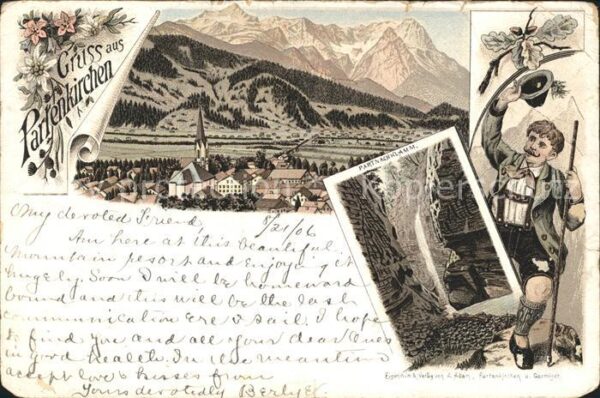 Gruss aus
Partenkirchen
PARTNACHKLAMM.
My devoted Friend, 8/21/06
Am here at this beautiful
Mountain resort and Enjoying it
hugely. Soon I will be homeward
bound and this will be the last
communication ere I sail. I hope
to find you and all your dear Ones
in good health. In the meantime
accept love & kisses from
Yours devotedly
Eigenthum & Verlag von A. Adam, Partenkirchen u. Garmisch.